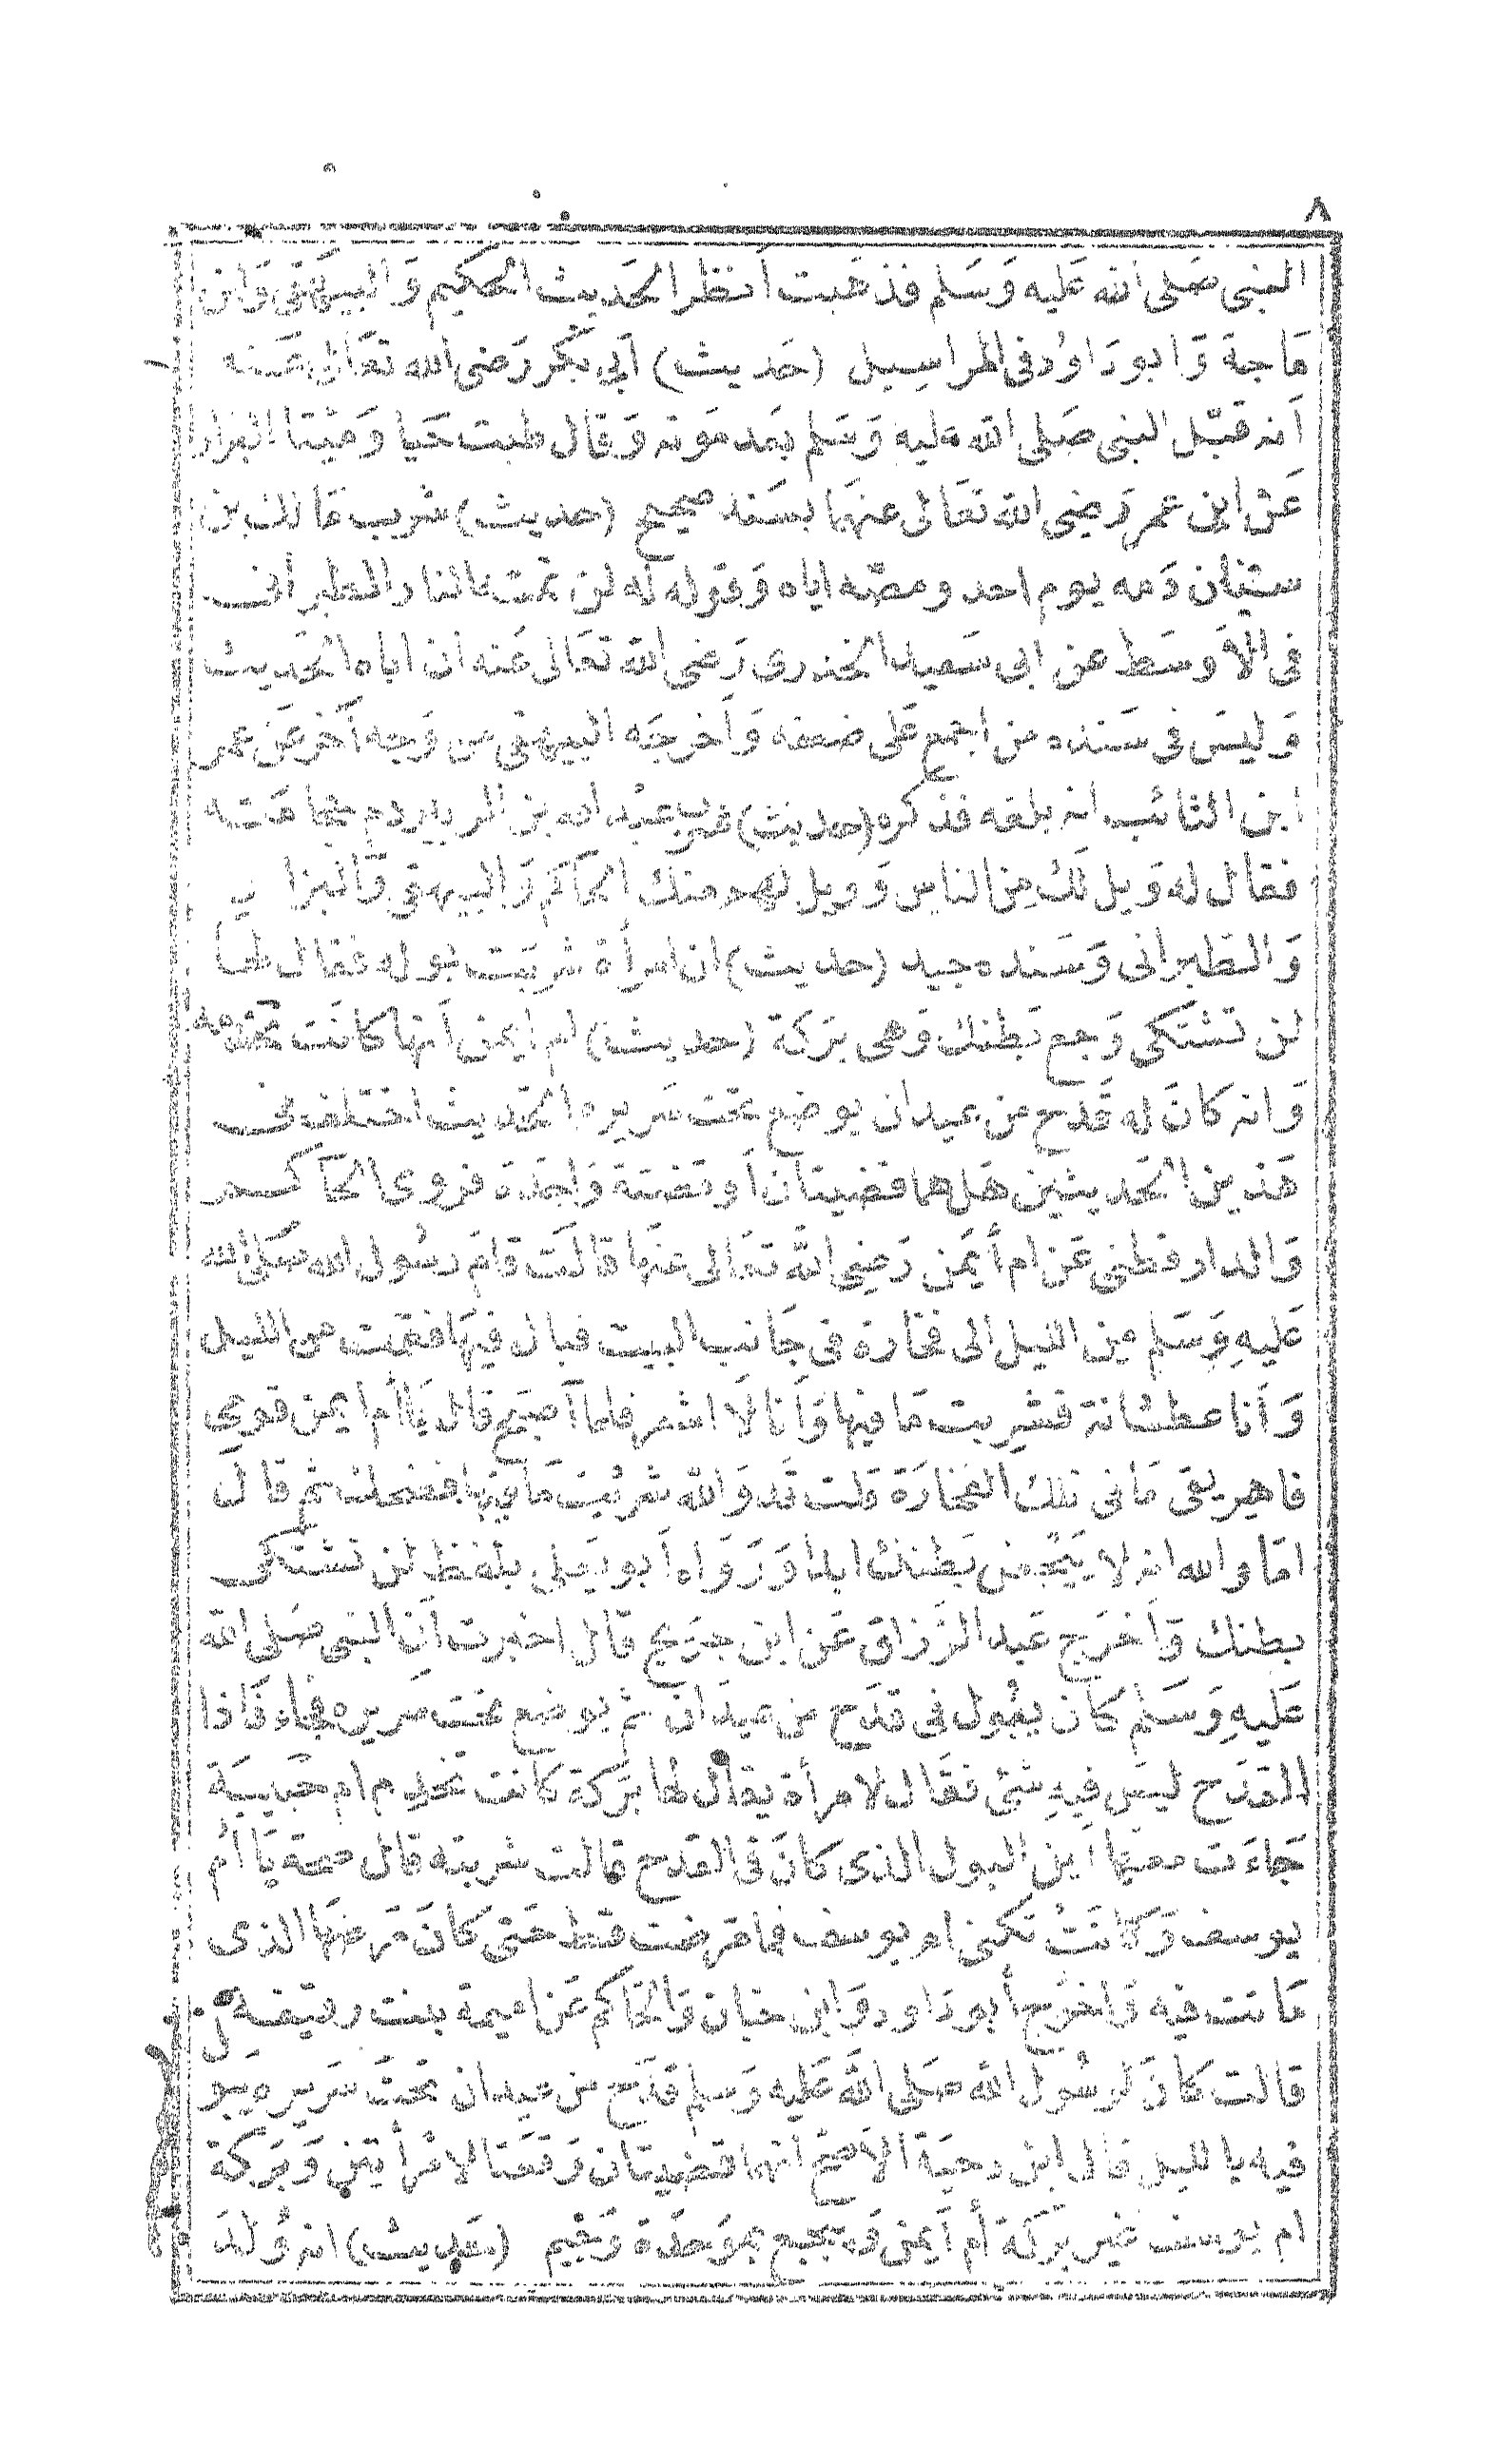 ٨
النبى صَلى الله عَليه وَسَلم فذهَبت أنظر الحَديث الحكيم وَالبيهقى وَابن
مَاجة وَابو داوُد فى المراسيل (حَديث) أبى بَكر رَضى الله تعَالى عَنه
أنه قبّل النبى صَلى الله عليه وَسَلم بعَد موَته وَقال طبت حَيا وَميتا البزار
عَن ابن عمر رَضى الله تعَالى عنهَما بسَند صحيح (حديث) شرب مَالك بن
سنان دَمه يوم احد ومصّه اياه وَقوله له لن تمسَّه النار الطبرانى
فى الأوسَط عن ابى سَعيد الخدرى رَضى الله تعَالى عَنه ان اباه الحَديث
وَليسَ فى سَنده من اجتمع عَلى ضعفه وَأخرجَه البيهقى من وَجه آخر عَن عمر
ابن السائب انه بلغه فذكره (حديث) شرب عبْد الله بن الزبير دم حجامَته
فقال له وَيل لكَ مِن الناس وَويل لهم منك الحاَكم وَالبيهقى وَالبزا ر
وَالطبرانى وَسَنده جيد (حديث) ان امرأة شربَت بوله فقال لهَا
لن تشتَكى وَجع بَطنك وَهى برَكة (حديث) ام ايمن أنها كانَت تخدمه
وَانه كانَ له قَدح من عيدان يوضع تحت سَريره الحَديث اختلف فى
هَذين الحَديثين هَل هما قضيتان أو قضية وَاحدَة فروى الحاَكم
وَالدارقطنى عَن ام أيمَن رَضى اللَّه تعَالى عنهَا قالَت قامَ رسُول الله صَلى الله
عَليهِ وَسَلم من الليل الى فخارة فى جَانب البيت فبال فيهَا فقمت من الليل
وَأنا عطشانة فشربت مَا فيها وَأنا لَا اشعر فلما أصبَح قال يَا أم ايمن قومى
فاهريقى مَا فى تلك الفخارَة قلت قَد وَالله شربْت مَا فيهَا فضحك ثم قا لَ
امَا والله انه لا يَيجعن بَطنك ابدا وَرَوَاه أبو يَعلى بلفظ لن تشتَكى
بطنك وَأخرَج عَبد الرَّزاق عَن ابن جرَيج قال اخبرت أن النبى صَلى الله
عَليهِ وَسَلم كان يبُول فى قدَح من عيدَان ثم يوضع تحت سَريره فجاء فَاذا
القدَح ليسَ فيهِ شئ فقَال لامرأة يقال لها برَكة كانت تخدم ام حَبيبَة
جَاءَت معهَا اين البول الذى كانَ فى القدح قالت شربته قال صحة يَا أم
يوسف وَكانَتْ تكنى ام يوسف فما مَرضت قط حَتى كانَ مَرضهَا الذى
مَاتت فيه وَاخرَج أبو دَاود وَابن حبان وَالحَاكم عَن اميمة بنت رقيقة
قالت كانَ لرسُول الله صَلى الله عَليه وَسَلم قدَح من عيدان تحتَ سَريره يبو ل
فيه بالليل قال ابن دحيَة الأصَح انها قضيتان وَقعَتا لامرأتين وَبرَكة
ام يوسف غير برَكة أم أيمن وَهَ بموَحدَة وَجيم (حَديث) انه وُلدَ